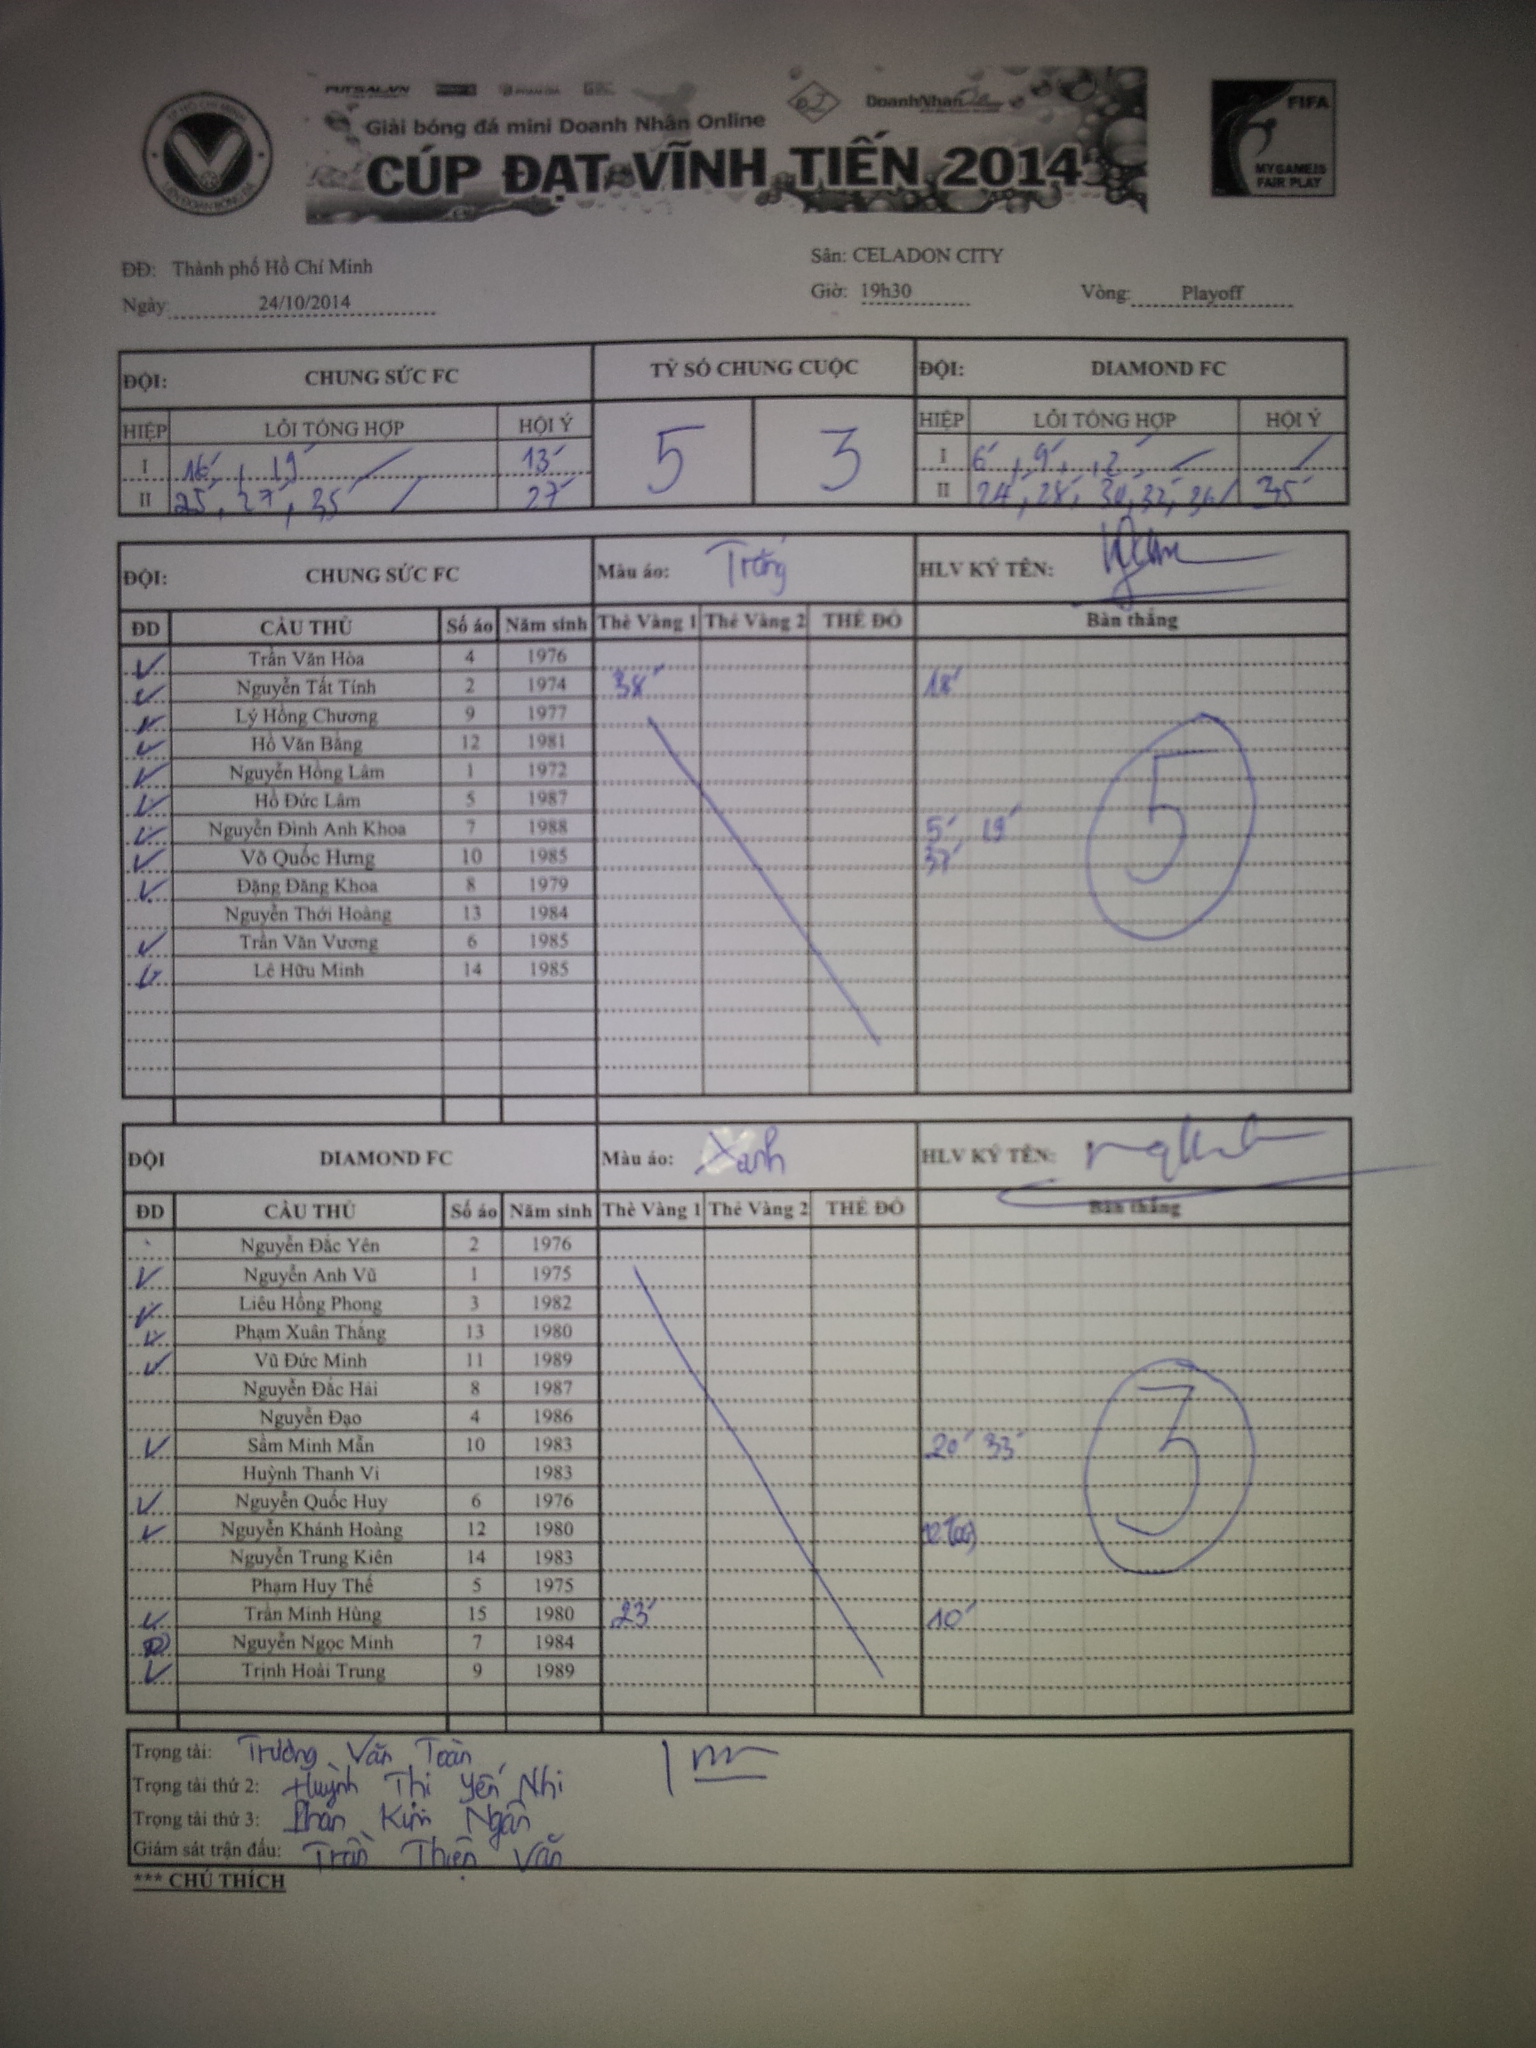 FUTSAL.VN
DoanhNhan
Giải bóng đá mini Doanh Nhân Online
CÚP ĐẠT VĨNH TIẾN 2014
TP HỒ CHÍ MINH
LIÊN ĐOÀN BÓNG ĐÁ
FIFA
MY GAME IS
FAIR PLAY
ĐĐ: Thành phố Hồ Chí Minh
Sân: CELADON CITY
Ngày: 24/10/2014
Giờ: 19h30 Vòng: Playoff
ĐỘI: CHUNG SỨC FC TỶ SỐ CHUNG CUỘC ĐỘI: DIAMOND FC
HIỆP LỖI TỔNG HỢP HỘI Ý 5 3 HIỆP LỖI TỔNG HỢP HỘI Ý
I 16', 19' 13' I 6', 9',
II 25', 27', 35' 27' II 24', 28', 30', 32', 35'
ĐỘI: CHUNG SỨC FC Màu áo: Trắng HLV KÝ TÊN:
ĐD CẦU THỦ Số áo Năm sinh Thẻ Vàng 1 Thẻ Vàng 2 THẺ ĐỎ Bàn thắng
Trần Văn Hòa 4 1976
Nguyễn Tất Tính 2 1974 38' 18'
Lý Hồng Chương 9 1977
Hồ Văn Bằng 12 1981
Nguyễn Hồng Lâm 1 1972
Hồ Đức Lâm 5 1987
Nguyễn Đình Anh Khoa 7 1988 5', 19'
Võ Quốc Hưng 10 1985 37'
Đặng Đăng Khoa 8 1979
Nguyễn Thới Hoàng 13 1984
Trần Văn Vương 6 1985
Lê Hữu Minh 14 1985
5
ĐỘI DIAMOND FC Màu áo: Xanh HLV KÝ TÊN:
ĐD CẦU THỦ Số áo Năm sinh Thẻ Vàng 1 Thẻ Vàng 2 THẺ ĐỎ Bàn thắng
Nguyễn Đắc Yên 2 1976
Nguyễn Anh Vũ 1 1975
Liêu Hồng Phong 3 1982
Phạm Xuân Thắng 13 1980
Vũ Đức Minh 11 1989
Nguyễn Đắc Hải 8 1987
Nguyễn Đạo 4 1986
Sầm Minh Mẫn 10 1983 20' 33'
Huỳnh Thanh Vi 1983
Nguyễn Quốc Huy 6 1976
Nguyễn Khánh Hoàng 12 1980
Nguyễn Trung Kiên 14 1983
Phạm Huy Thế 5 1975
Trần Minh Hùng 15 1980 23' 10'
Nguyễn Ngọc Minh 7 1984
Trịnh Hoài Trung 9 1989
3
Trọng tài: Trương Văn Toàn
Trọng tài thứ 2: Huỳnh Thị Yến Nhi
Trọng tài thứ 3: Phan Kim Ngân
Giám sát trận đấu: Trần Thiện Văn
*** CHÚ THÍCH